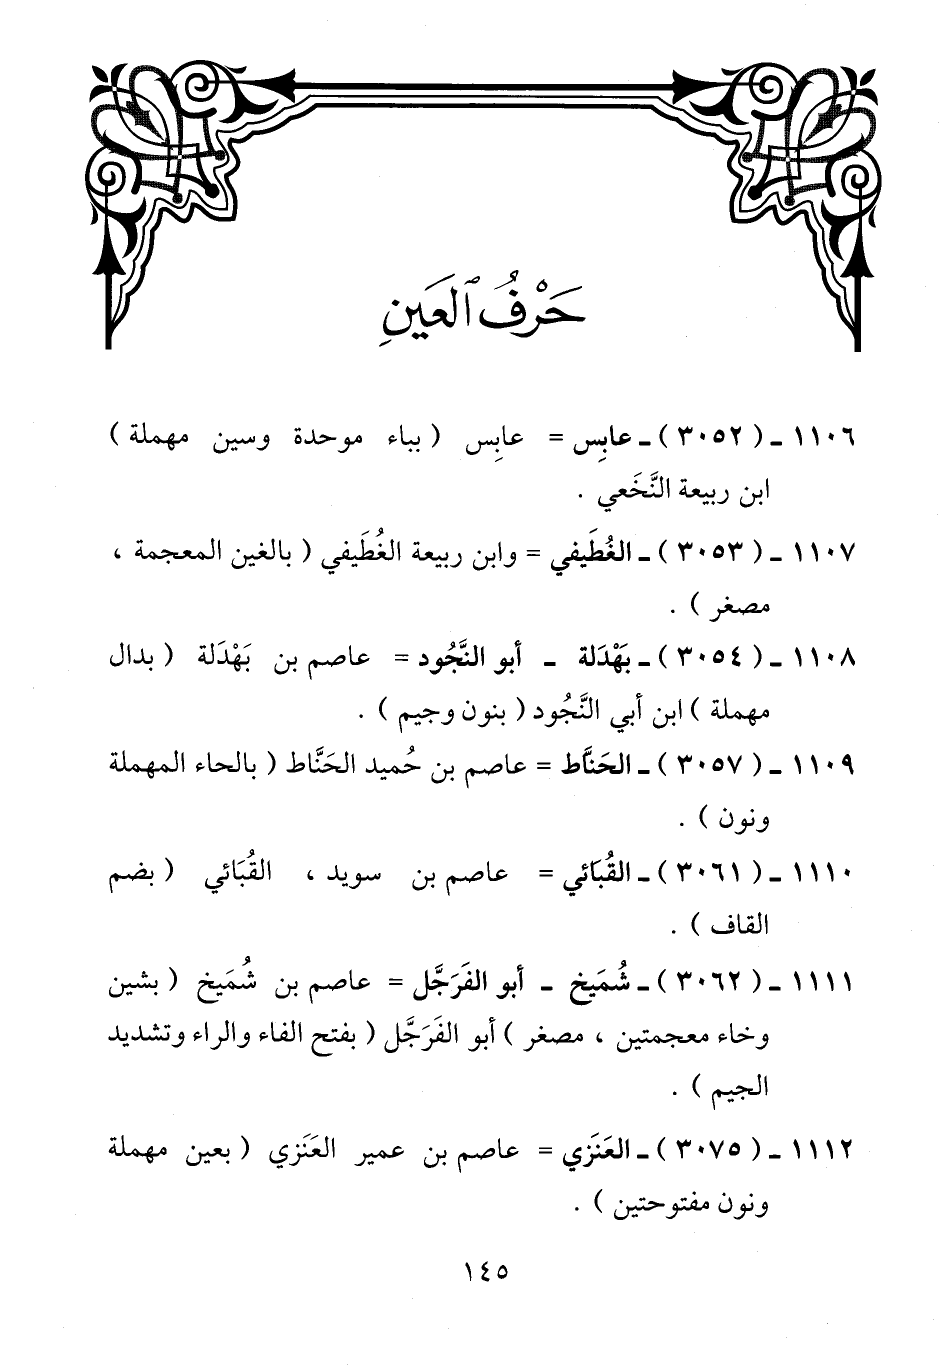 حَرْفُ العَينِ
١١٠٦ ـ ( ٣٠٥٢ ) ـ عابِس = عابِس ( بباء موحدة وسين مهملة )
ابن ربيعة النَّخَعي .
١١٠٧ ـ ( ٣٠٥٣ ) ـ الغُطَيفي = وابن ربيعة الغُطَيفي ( بالغين المعجمة ،
مصغر ) .
١١٠٨ ـ ( ٣٠٥٤ ) ـ بَهْدَلة ـ أبو النَّجُود = عاصم بن بَهْدَلة ( بدال
مهملة ) ابن أبي النَّجُود ( بنون وجيم ) .
١١٠٩ ـ ( ٣٠٥٧ ) ـ الحَنَّاط = عاصم بن حُميد الحَنَّاط ( بالحاء المهملة
ونون ) .
١١١٠ ـ ( ٣٠٦١ ) ـ القُبَائي = عاصم بن سويد ، القُبَائي ( بضم
القاف ) .
١١١١ ـ ( ٣٠٦٢ ) ـ شُمَيخ ـ أبو الفَرَجَّل = عاصم بن شُمَيخ ( بشين
وخاء معجمتين ، مصغر ) أبو الفَرَجَّل ( بفتح الفاء والراء وتشديد
الجيم ) .
١١١٢ ـ ( ٣٠٧٥ ) ـ العَنَزي = عاصم بن عمير العَنَزي ( بعين مهملة
ونون مفتوحتين ) .
١٤٥